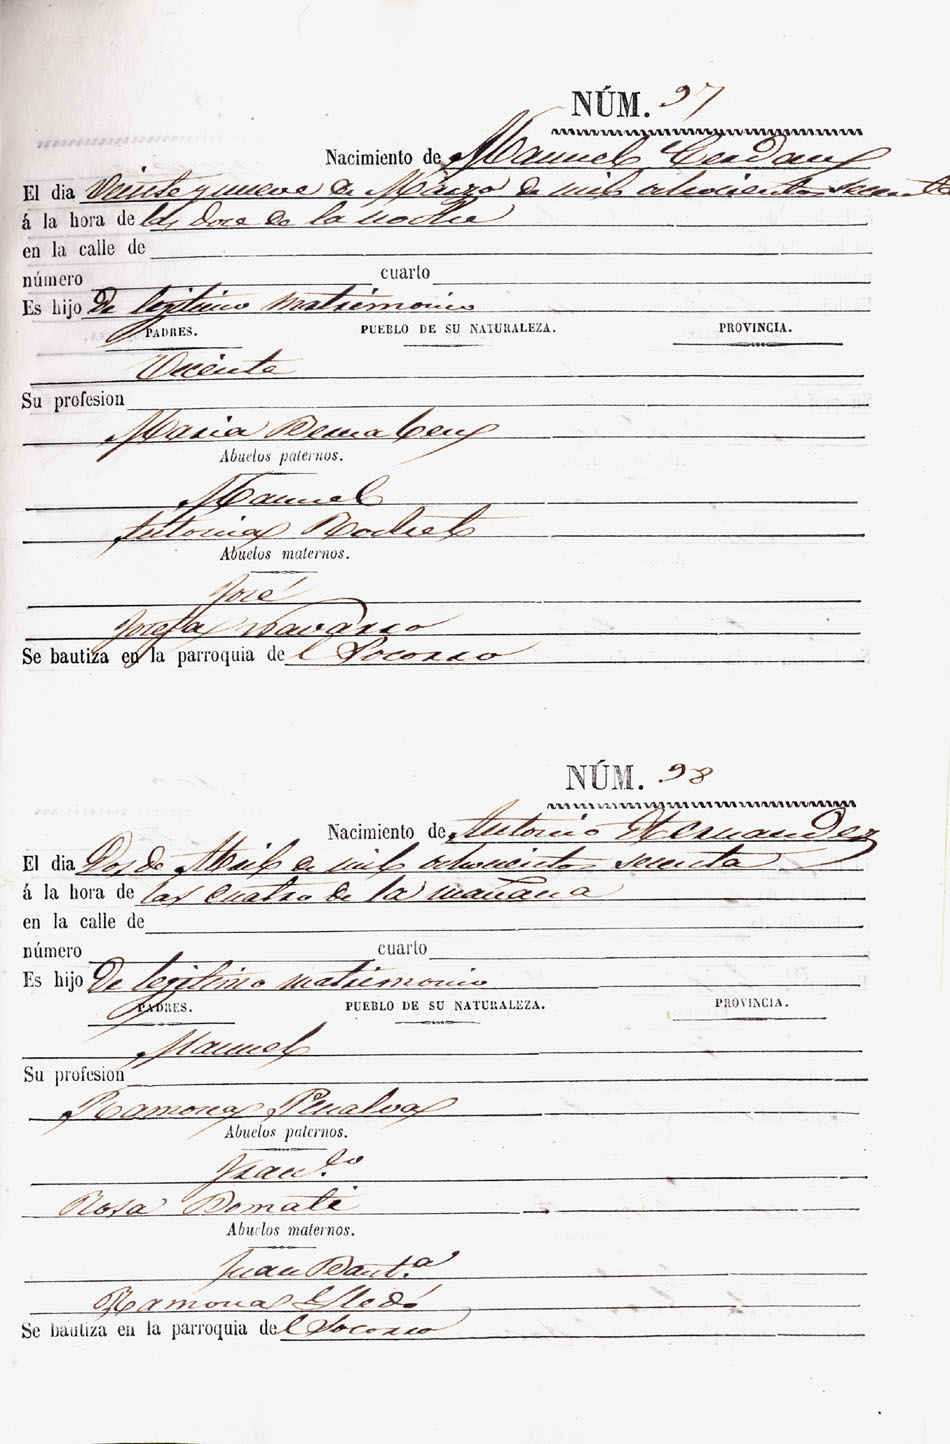 NÚM. 97
Nacimiento de Manuel Cerdan
El dia Veinte y nueve de Marzo de mil ochocientos sesenta
á la hora de las doce de la noche
en la calle de
número cuarto
Es hijo de legitimo matrimonio
PADRES. PUEBLO DE SU NATURALEZA. PROVINCIA.
Vicente
Su profesion
Maria Bernabeu
Abuelos paternos.
Manuel
Antonia
Abuelos maternos.
José
Josefa Navarro
Se bautiza en la parroquia de l Socorro
NÚM. 98
Nacimiento de Antonio Hernandez
El dia Dos de Abril de mil ochocientos sesenta
á la hora de las cuatro de la mañana
en la calle de
número cuarto
Es hijo De legitimo matrimonio
PADRES. PUEBLO DE SU NATURALEZA. PROVINCIA.
Manuel
Su profesion
Ramona Penalva
Abuelos paternos.
Fran.co
Rosa
Abuelos maternos.
Juan Baut.a
Ramona Lledó
Se bautiza en la parroquia de l Socorro